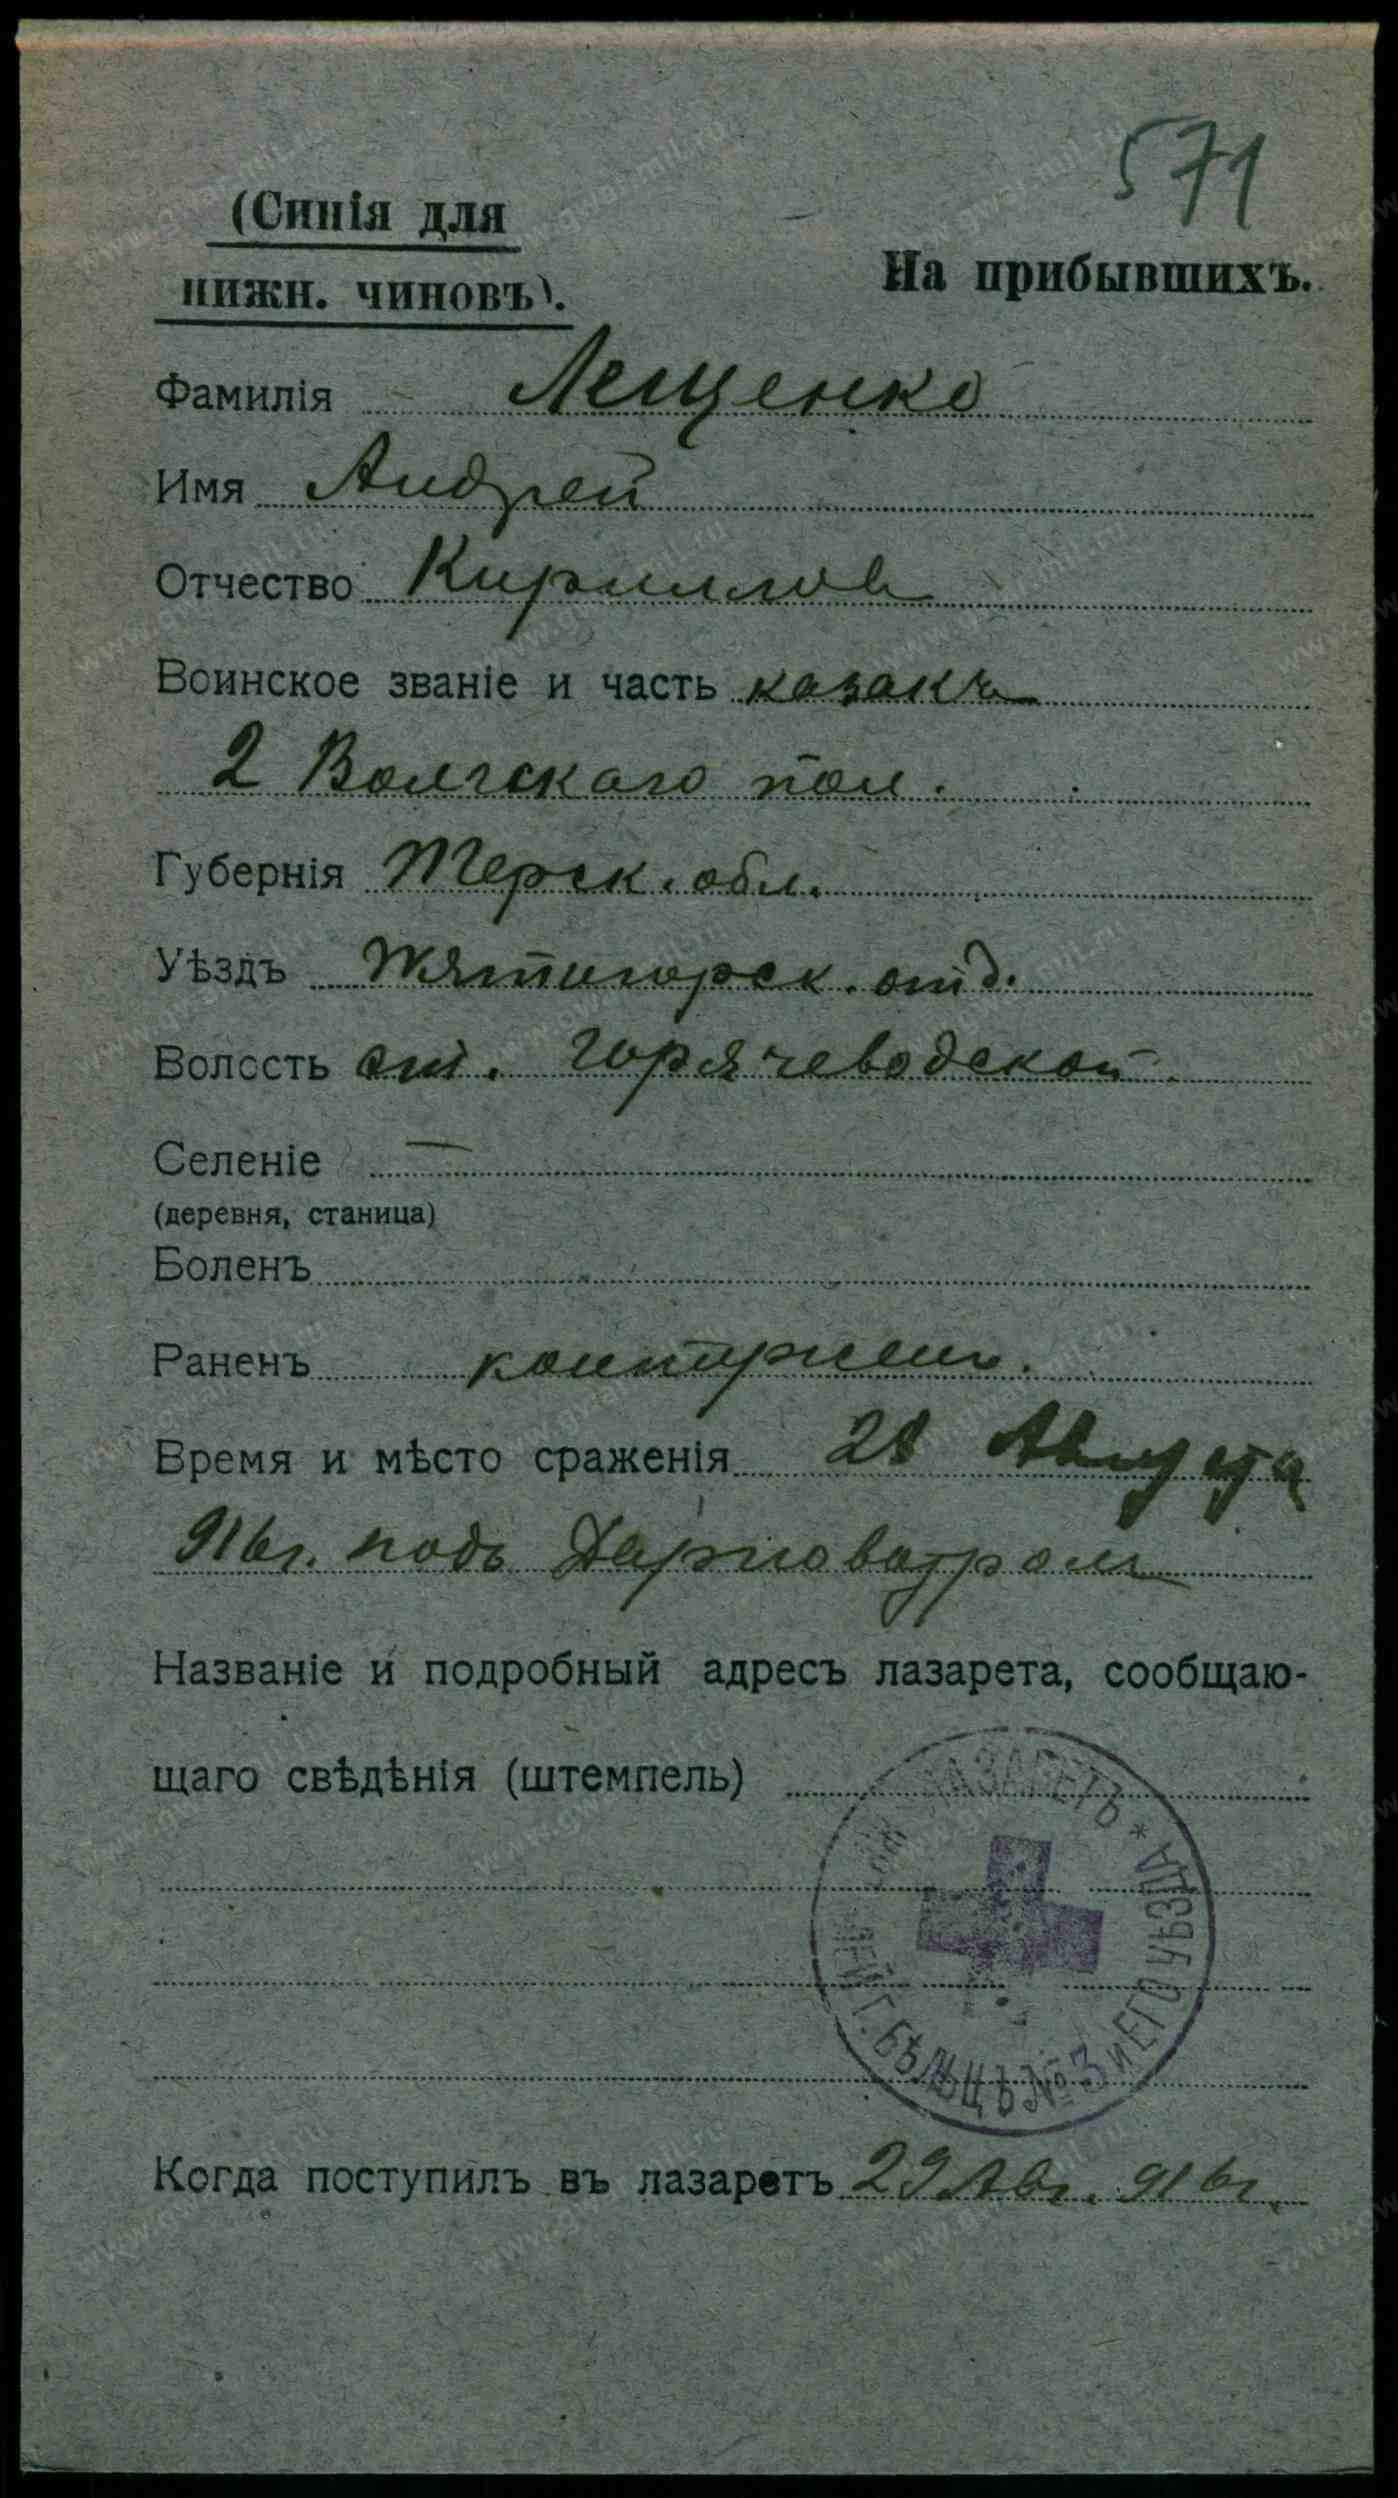 571
(Синія для
нижн. чиновъ).
На прибывшихъ.
Фамилія Лещенко
Имя Андрей
Отчество Кириллов
Воинское званіе и часть казакъ
2 Волгскаго пол.
Губернія Терск. обл.
Уѣздъ Пятигорск. отд.
Волость ст. Горячеводской
Селеніе —
(деревня, станица)
Боленъ
Раненъ контужен.
Время и мѣсто сраженія 28 Августа
916г. подъ Дарноватром
Названіе и подробный адресъ лазарета, сообщаю-
щаго свѣдѣнія (штемпель)
ЛАЗАРЕТЪ * Г. БѢЛЬЦЪ № 3 И ЕГО УѢЗДА
Когда поступилъ въ лазаретъ 29 Авг. 916г.
www.gwar.mil.ru